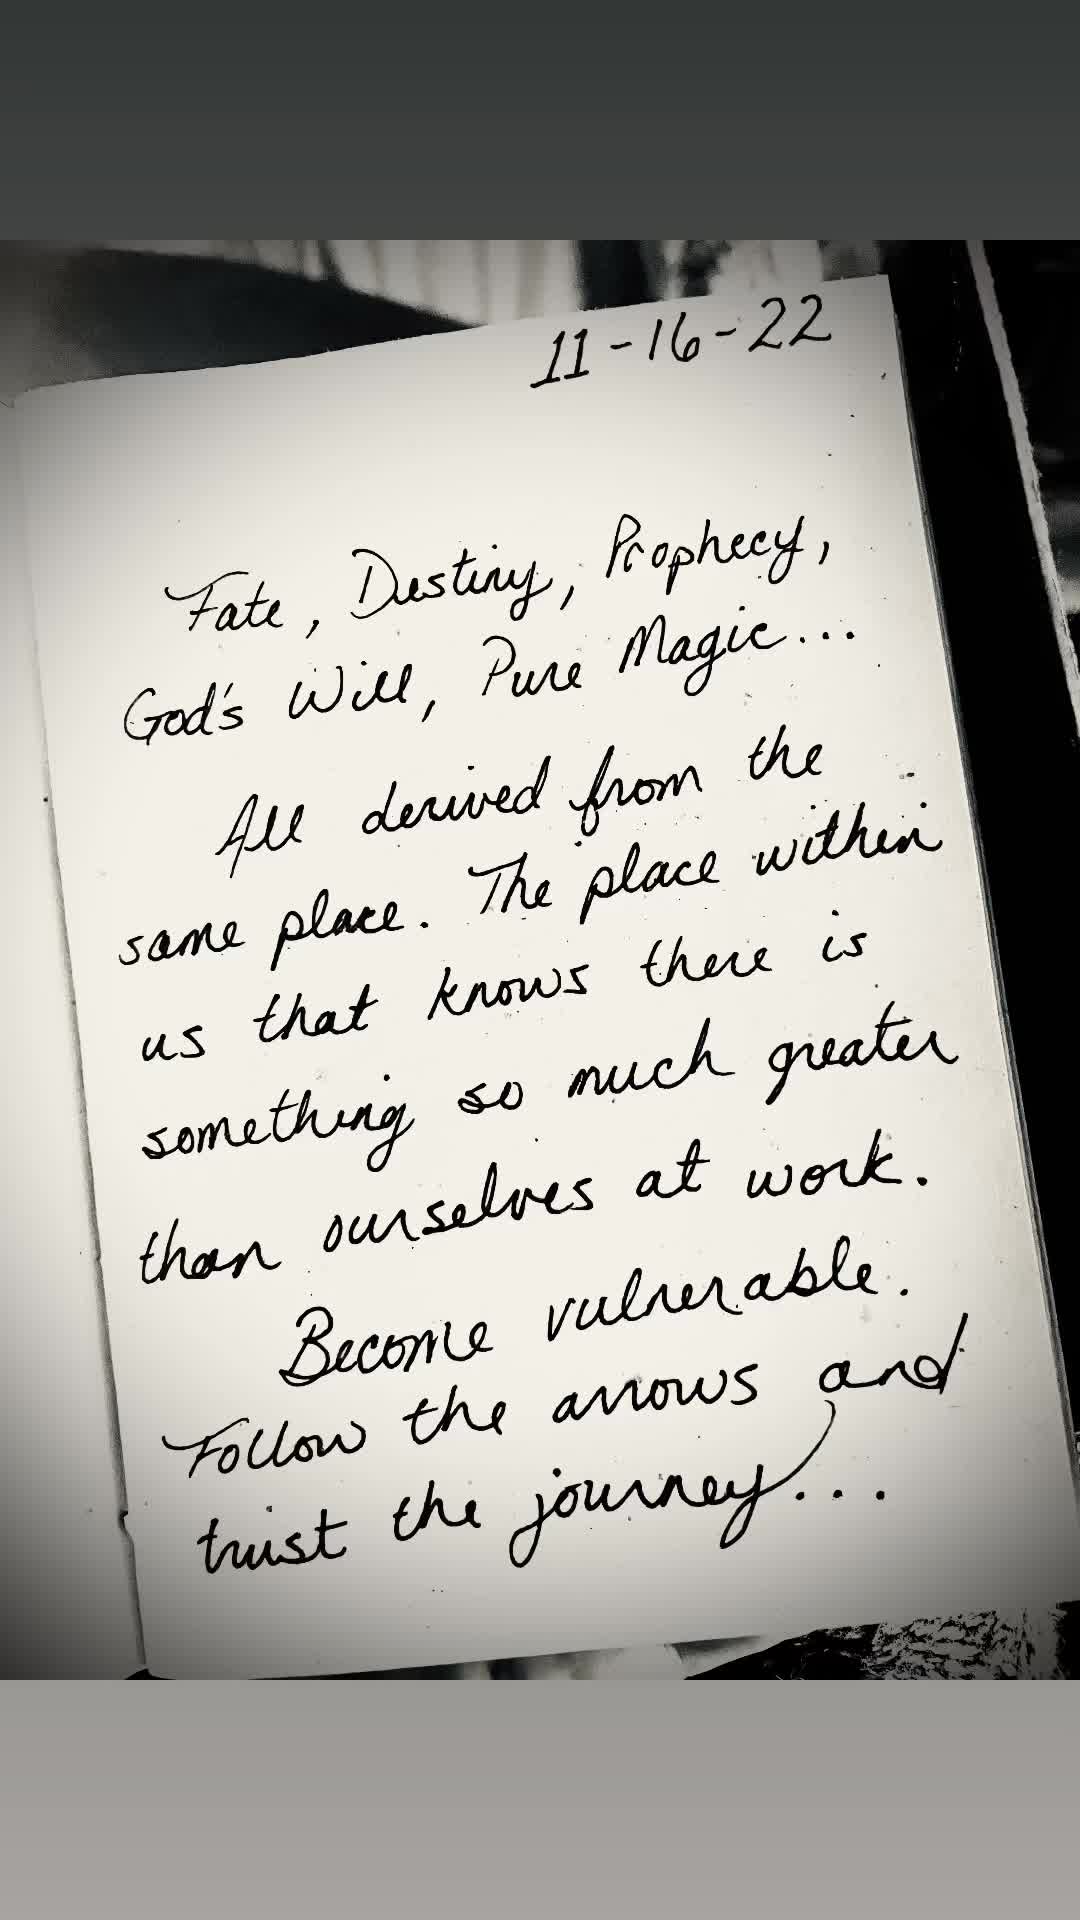 11-16-22
Fate, Destiny, Prophecy,
God's Will, Pure Magic...
All derived from the
same place. The place within
us that knows there is
something so much greater
than ourselves at work.
Become vulnerable.
Follow the arrows and
trust the journey...